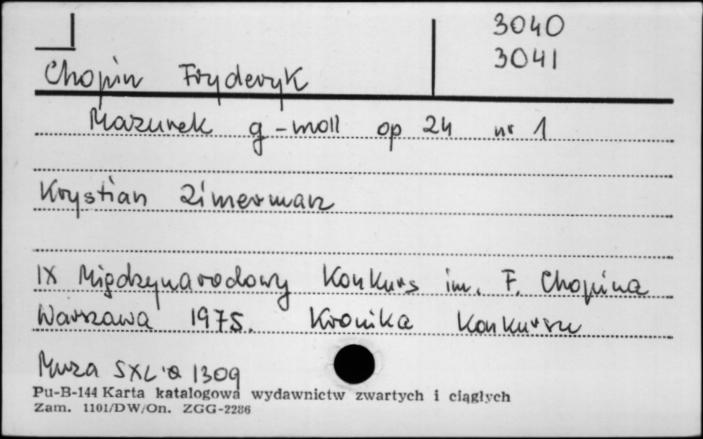 3040
3041
Chopin Fryderyk
Mazurek g-moll op 24 nr 1
Krystian Zimerman
IX Międzynarodowy Konkurs im. F. Chopina
Warszawa 1975. Kronika Konkursu
Muza SXL 1309
Pu-B-144 Karta katalogowa wydawnictw zwartych i ciągłych
Zam. 1101/DW/On. ZGG-2286